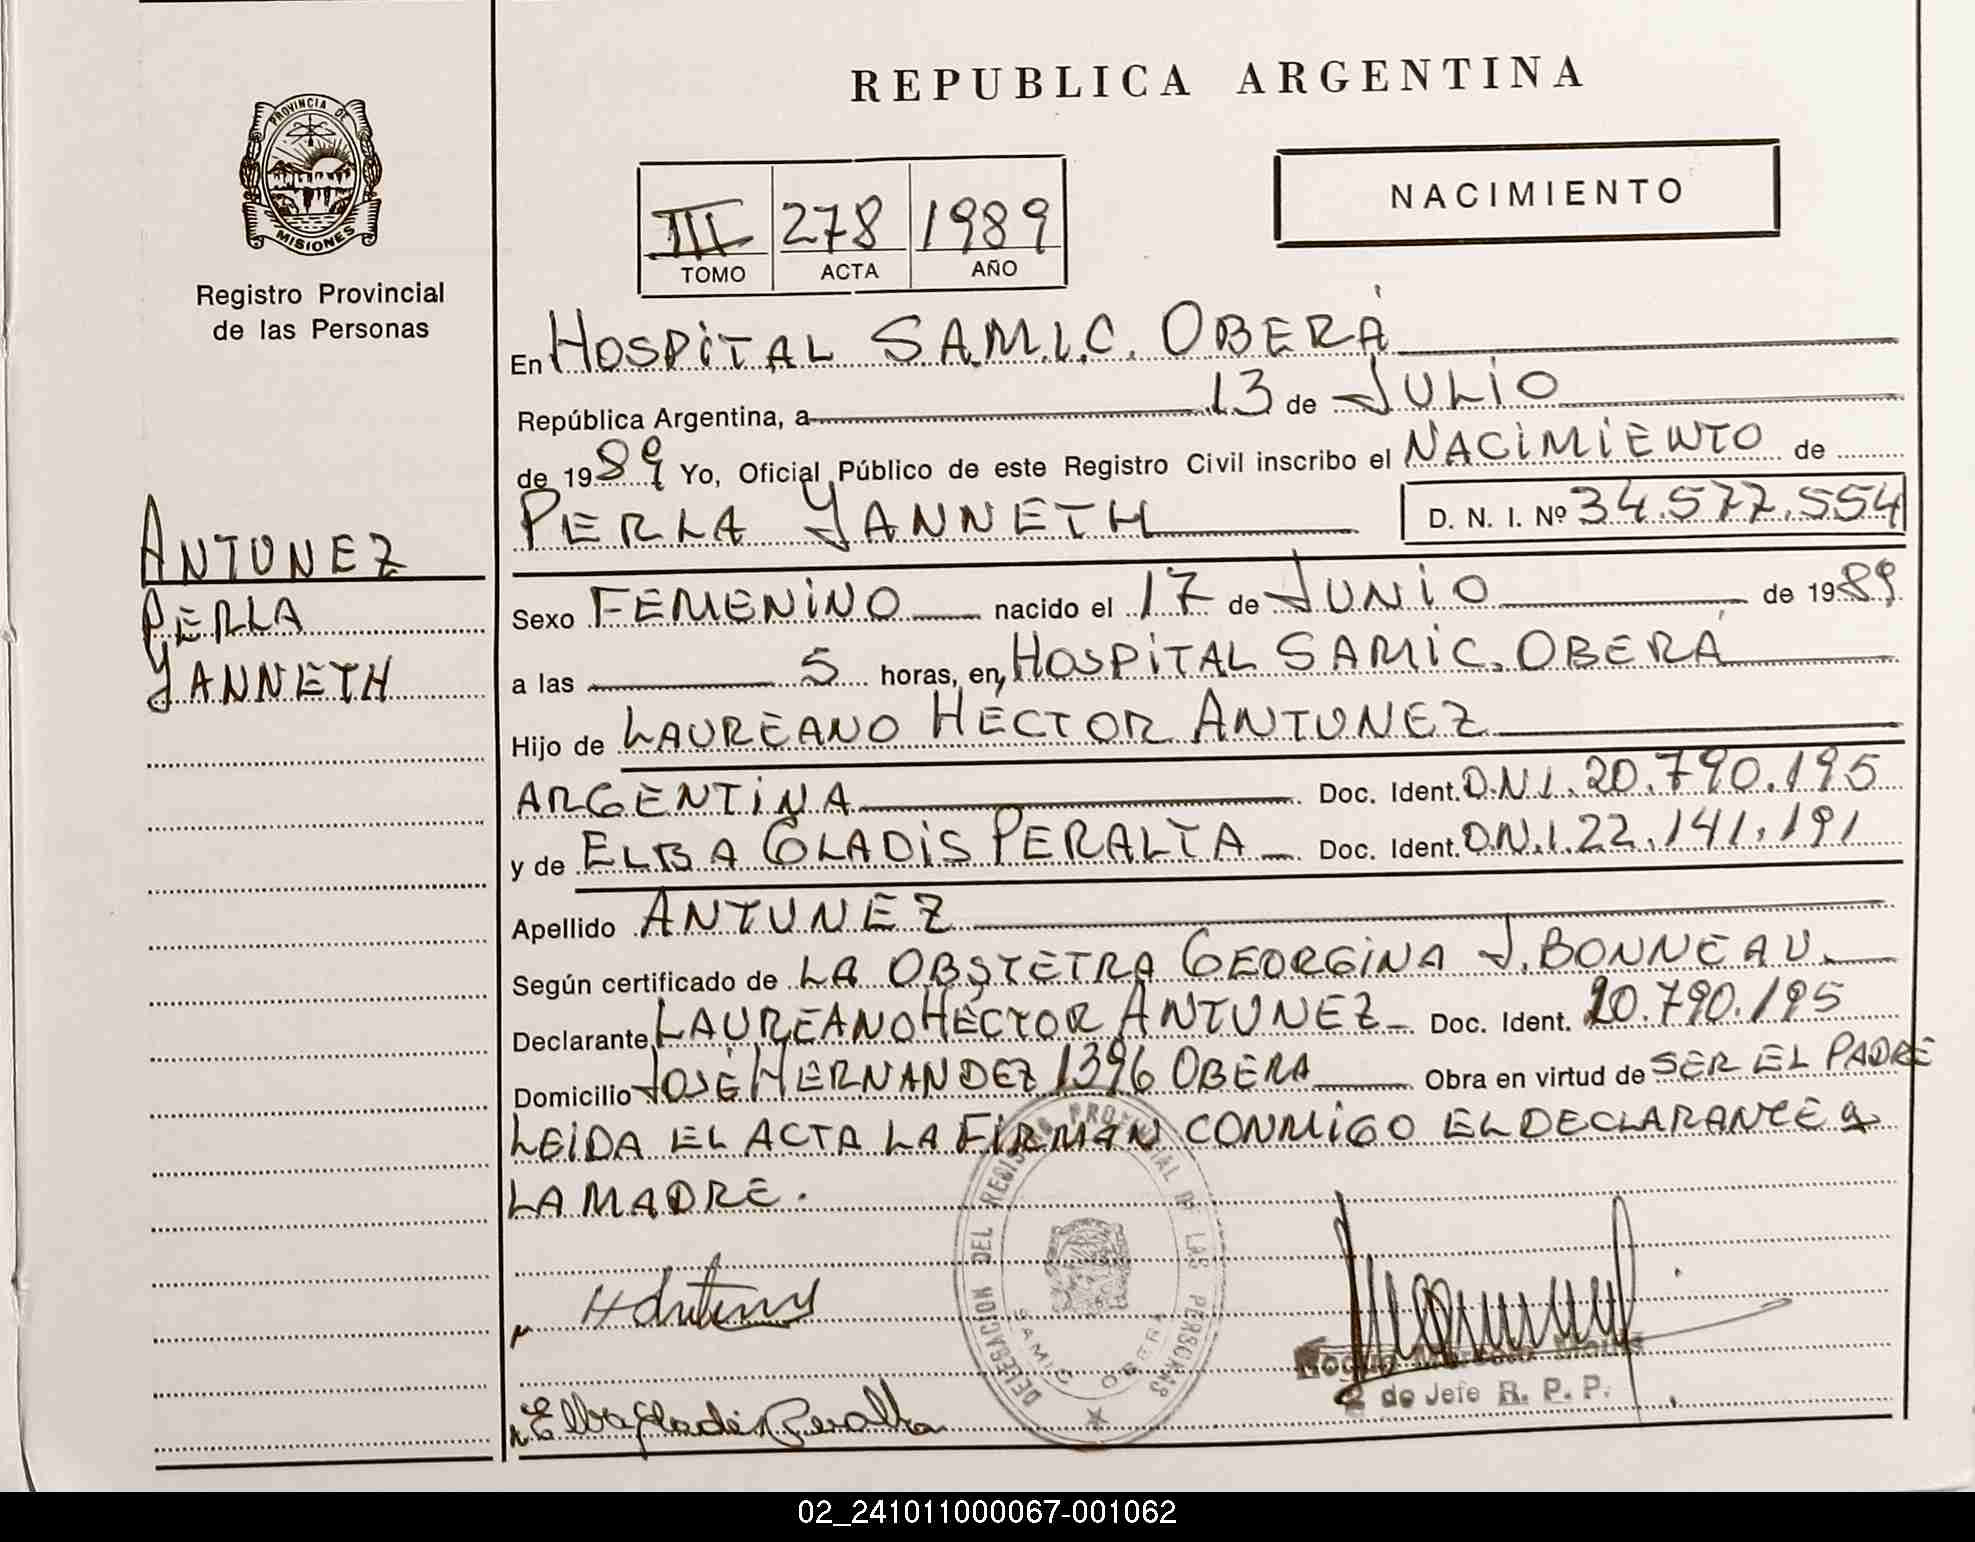 PROVINCIA DE
MISIONES
Registro Provincial
de las Personas
ANTUNEZ
PERLA
YANNETH
REPUBLICA ARGENTINA
NACIMIENTO
III 278 1989
TOMO ACTA AÑO
En HOSPITAL SAM.I.C. OBERÁ
República Argentina, a 13 de JULIO
de 1989 Yo, Oficial Público de este Registro Civil inscribo el NACIMIENTO de
PERLA YANNETH D. N. I. Nº 34.577.554
Sexo FEMENINO nacido el 17 de JUNIO de 1989
a las 5 horas, en HOSPITAL SAMIC. OBERÁ
Hijo de LAUREANO HECTOR ANTUNEZ
ARGENTINA Doc. Ident. D.N.I. 20.790.195
y de ELBA GLADIS PERALTA Doc. Ident. D.N.I. 22.141.191
Apellido ANTUNEZ
Según certificado de LA OBSTETRA GEORGINA J. BONNEAU.
Declarante LAUREANO HECTOR ANTUNEZ Doc. Ident. 20.790.195
Domicilio JOSÉ HERNANDEZ 1396 OBERA Obra en virtud de SER EL PADRE
LEIDA EL ACTA LA FIRMAN CONMIGO EL DECLARANTE y
LA MADRE.
DELEGACION DEL REGISTRO PROVINCIAL DE LAS PERSONAS
SAMIC OBERA
2 do Jefe R. P. P.
Elba Gladis Peralta
02_241011000067-001062